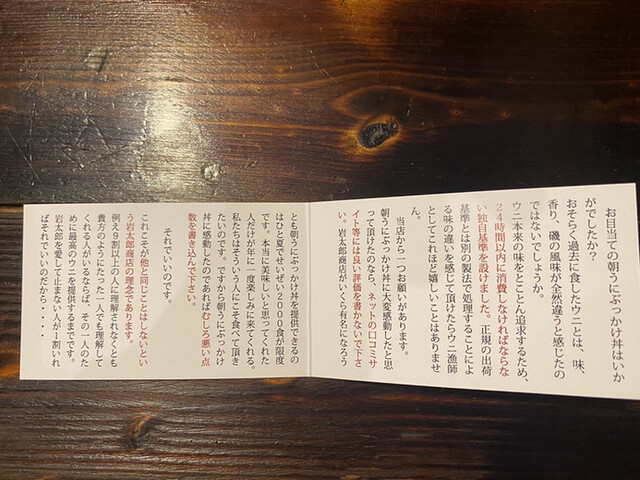 お目当ての朝うにぶっかけ丼はいか
がでしたか？
おそらく過去に食したウニとは、味、
香り、磯の風味が全然違うと感じたの
ではないでしょうか。
ウニ本来の味をとことん追求するため、
24時間以内に消費しなければならな
い独自基準を設けました。正規の出荷
基準とは別の製法で処理することによ
る味の違いを感じて頂けたらウニ漁師
としてこれほど嬉しいことはありませ
ん。
当店から一つお願いがあります。
朝うにぶっかけ丼に大変感動したと思
って頂けたのなら、ネットの口コミサ
イト等には良い評価を書かないで下さ
い。岩太郎商店がいくら有名になろう
とも朝うにぶっかけ丼を提供できるの
はひと夏でせいぜい2000食が限度
です。本当に美味しいと思ってくれた
人だけが年に一度楽しみに来てくれる。
私たちはそういう人にこそ食べて頂き
たいのです。ですから朝うにぶっかけ
丼に感動したのであればむしろ悪い点
数を書き込んで下さい。
それでいいのです。
これこそが他と同じことはしないとい
う岩太郎商店の理念であります。
例え9割以上の人に理解されなくとも
貴方のようにたった一人でも理解して
くれる人がいるならば、その一人のた
めに最高のウニを提供するまでです。
岩太郎を愛して止まない人が1割いれ
ばそれでいいのだから・・・